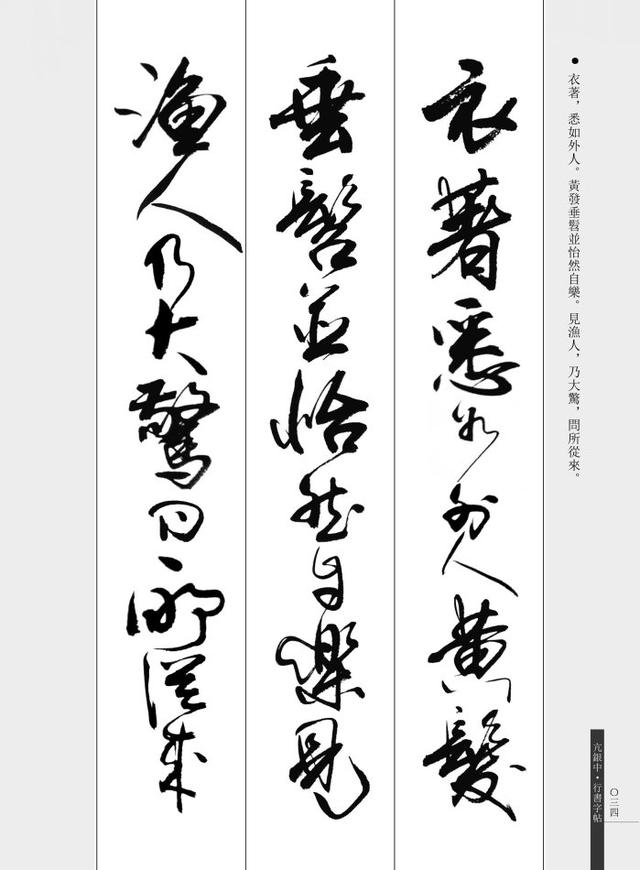 ● 衣著，悉如外人。黃發垂髫並怡然自樂。見漁人，乃大驚，問所從來。
衣著悉如外人黃髮
垂髫並怡然自樂見
漁人乃大驚問所從來
亢銀中·行書字帖
〇三四